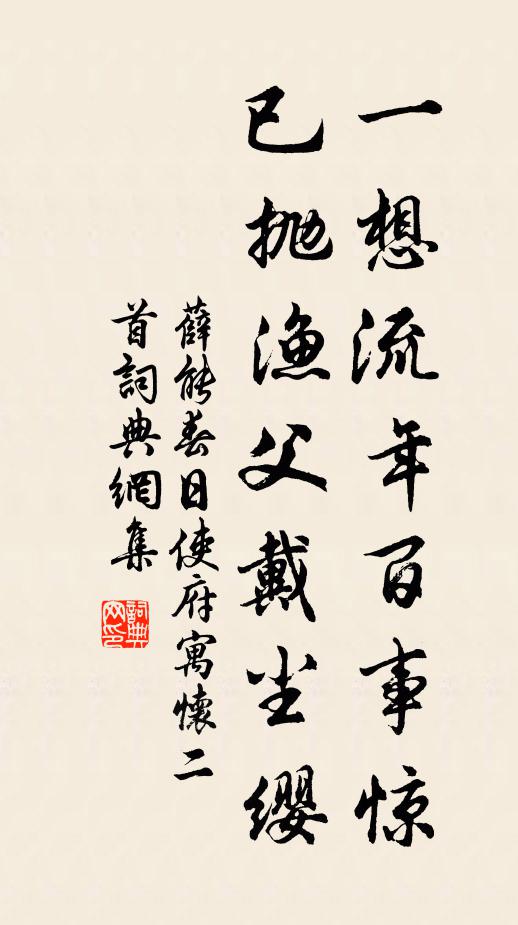 一想流年百事惊
已抛渔父戴尘缨
薛能春日使府寓懷二
首詞典網集
詞典
网印